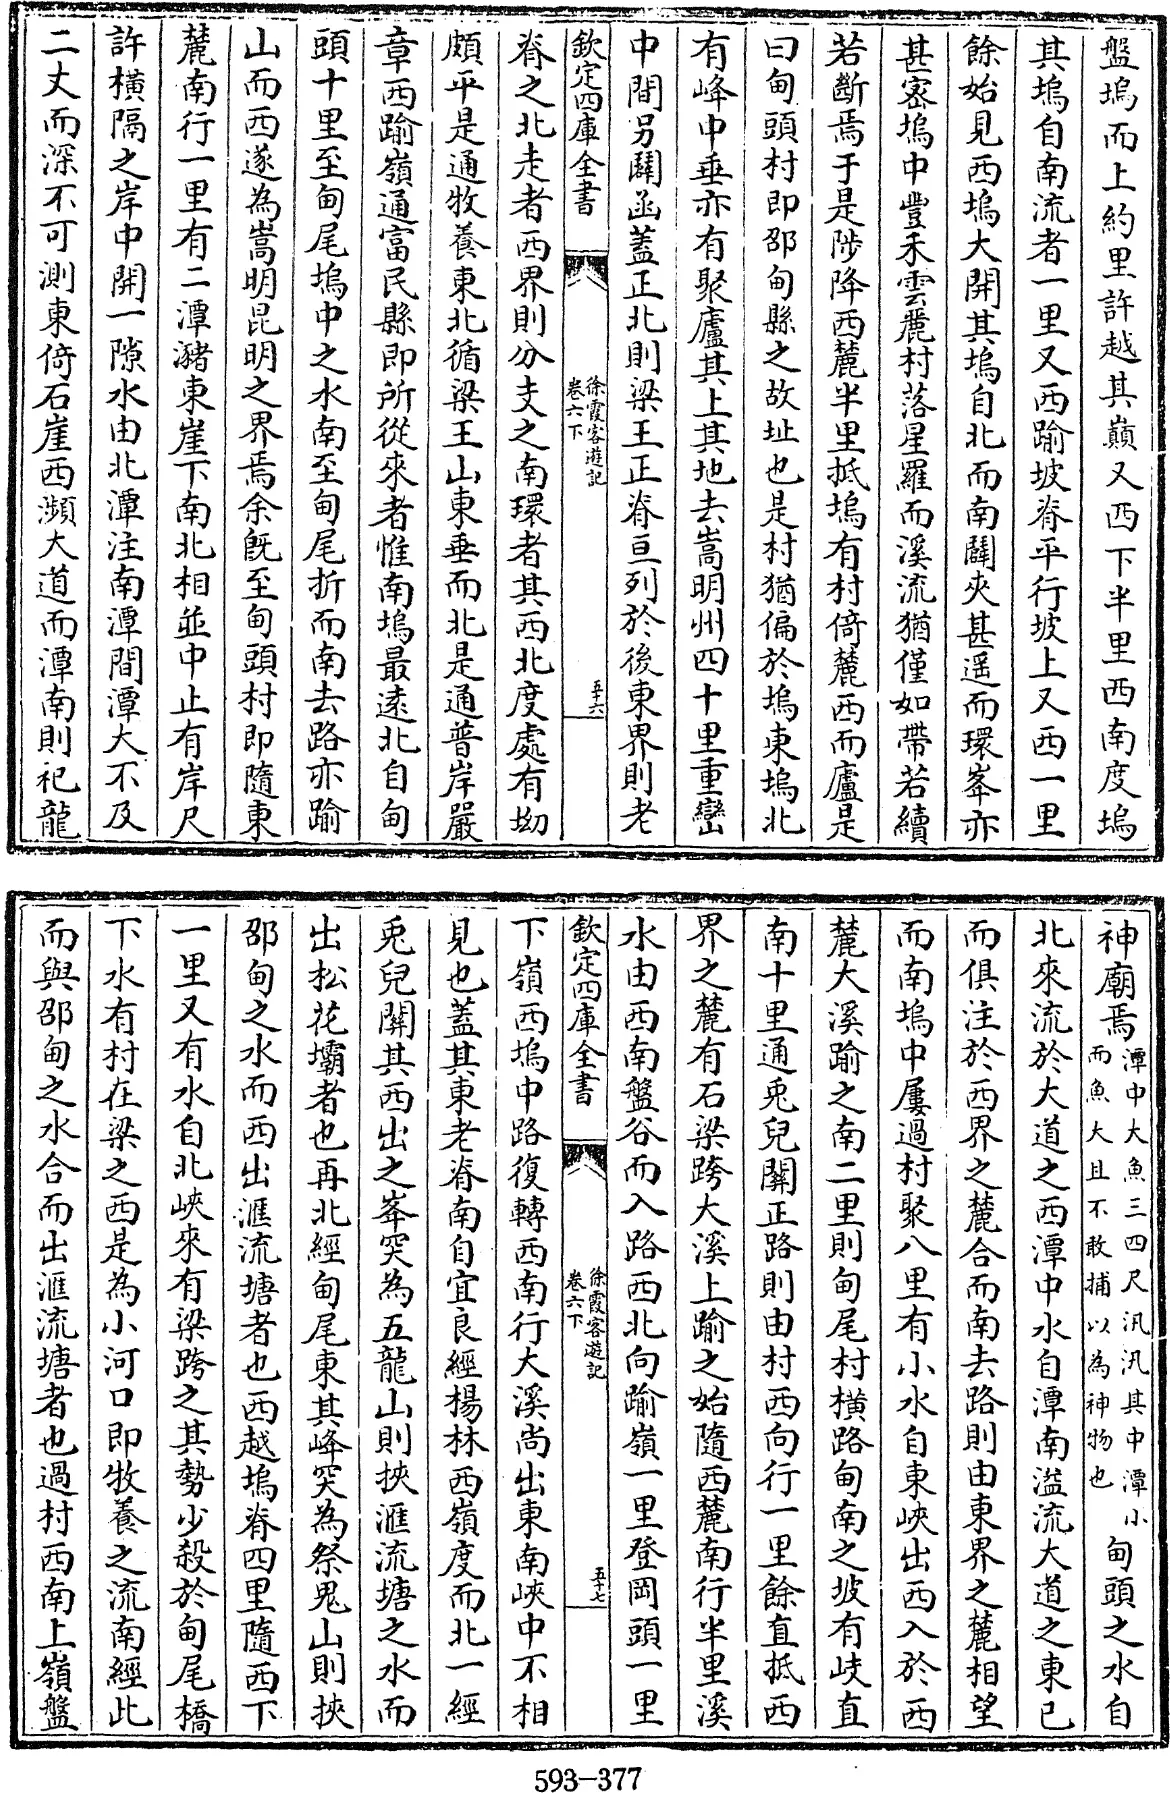 盤塢而上約里許越其巔又西下半里西南度塢
其塢自南流者一里又西踰坡脊平行坡上又西一里
餘始見西塢大開其塢自北而南闢夾甚遥而環峯亦
甚宻塢中豐禾雲麗村落星羅而溪流猶僅如帶若續
若斷焉于是陟降西麓半里抵塢有村倚麓西而廬是
曰甸頭村即邵甸縣之故址也是村猶偏於塢東塢北
有峰中垂亦有聚廬其上其地去嵩明州四十里重巒
中間另闢函蓋正北則梁王正脊亘列於後東界則老
欽定四庫全書
徐霞客遊記
卷六下
五十六
脊之北走者西界則分支之南環者其西北度處有坳
頗平是通牧養東北循梁王山東垂而北是通普岸嚴
章西踰嶺通富民縣即所從來者惟南塢最遠北自甸
頭十里至甸尾塢中之水南至甸尾折而南去路亦踰
山而西遂為嵩明昆明之界焉余既至甸頭村即隨東
麓南行一里有二潭瀦東崖下南北相並中止有岸尺
許橫隔之岸中開一隙水由北潭注南潭間潭大不及
二丈而深不可測東倚石崖西瀕大道而潭南則祀龍
神廟焉潭中大魚三四尺汎汎其中潭小
而魚大且不敢捕以為神物也
甸頭之水自
北來流於大道之西潭中水自潭南溢流大道之東已
而俱注於西界之麓合而南去路則由東界之麓相望
而南塢中屢過村聚八里有小水自東峽出西入於西
麓大溪踰之南二里則甸尾村横路甸南之坡有岐直
南十里通兎兒關正路則由村西向行一里餘直抵西
界之麓有石梁跨大溪上踰之始隨西麓南行半里溪
水由西南盤谷而入路西北向踰嶺一里登岡頭一里
欽定四庫全書
徐霞客遊記
卷六下
五十七
下嶺西塢中路復轉西南行大溪尚出東南峽中不相
見也蓋其東老脊南自宜良經楊林西嶺度而北一經
兎兒關其西出之峯突為五龍山則挾滙流塘之水而
出松花壩者也再北經甸尾東其峰突為祭鬼山則挾
邵甸之水而西出滙流塘者也西越塢脊四里隨西下
一里又有水自北峽來有梁跨之其勢少殺於甸尾橋
下水有村在梁之西是為小河口即牧養之流南經此
而與邵甸之水合而出滙流塘者也過村西南上嶺盤
593-377